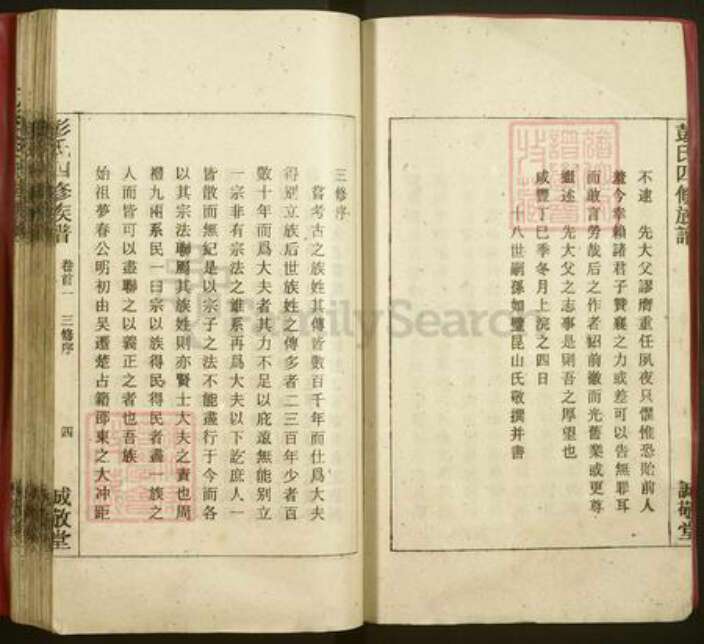 彭氏四修族譜
誠敬堂
不逮　先大父謬膺重任夙夜只懼惟恐貽前人
羞今幸賴諸君子贊襄之力或差可以告無罪耳
而敢言勞哉后之作者紹前徽而光舊業或更尊
繼述　先大父之志事是則吾之厚望也
咸豐丁巳季冬月上浣之四日
十八世嗣孫如璧昆山氏敬撰并書
三修序
嘗考古之族姓其傳皆數百千年而仕爲大夫
得别立族后世族姓之傳多者二三百年少者百
數十年而爲大夫者其力不足以庇遠無能别立
一宗非有宗法之維系再爲大夫以下訖庶人一
皆散而無紀是以宗子之法不能盡行于今而各
以其宗法聯屬其族姓則亦賢士大夫之責也周
禮九兩系民一曰宗以族得民得民者盡一族之
人而皆可以盡聯之以義正之者也吾族
始祖夢春公明初由吴遷楚占籍邵東之大冲距
彭氏四修族譜
卷首一
三修序
四
誠敬堂
FamilySearch